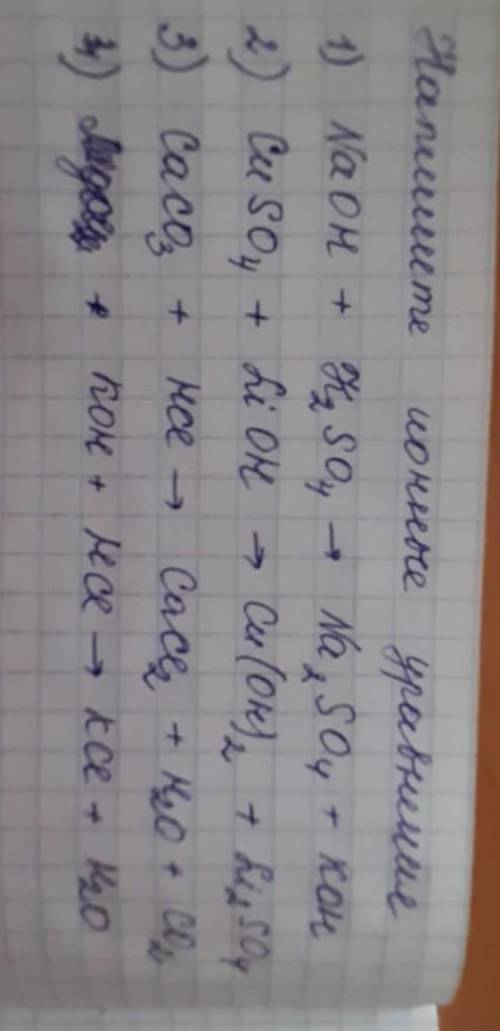 Напишите ионные уравнение
1) NaOH + H₂SO₄ → Na₂SO₄ + KOH
2) CuSO₄ + LiOH → Cu(OH)₂ + Li₂SO₄
3) CaCO₃ + HCl → CaCl₂ + H₂O + CO₂
4) + KOH + HCl → KCl + H₂O